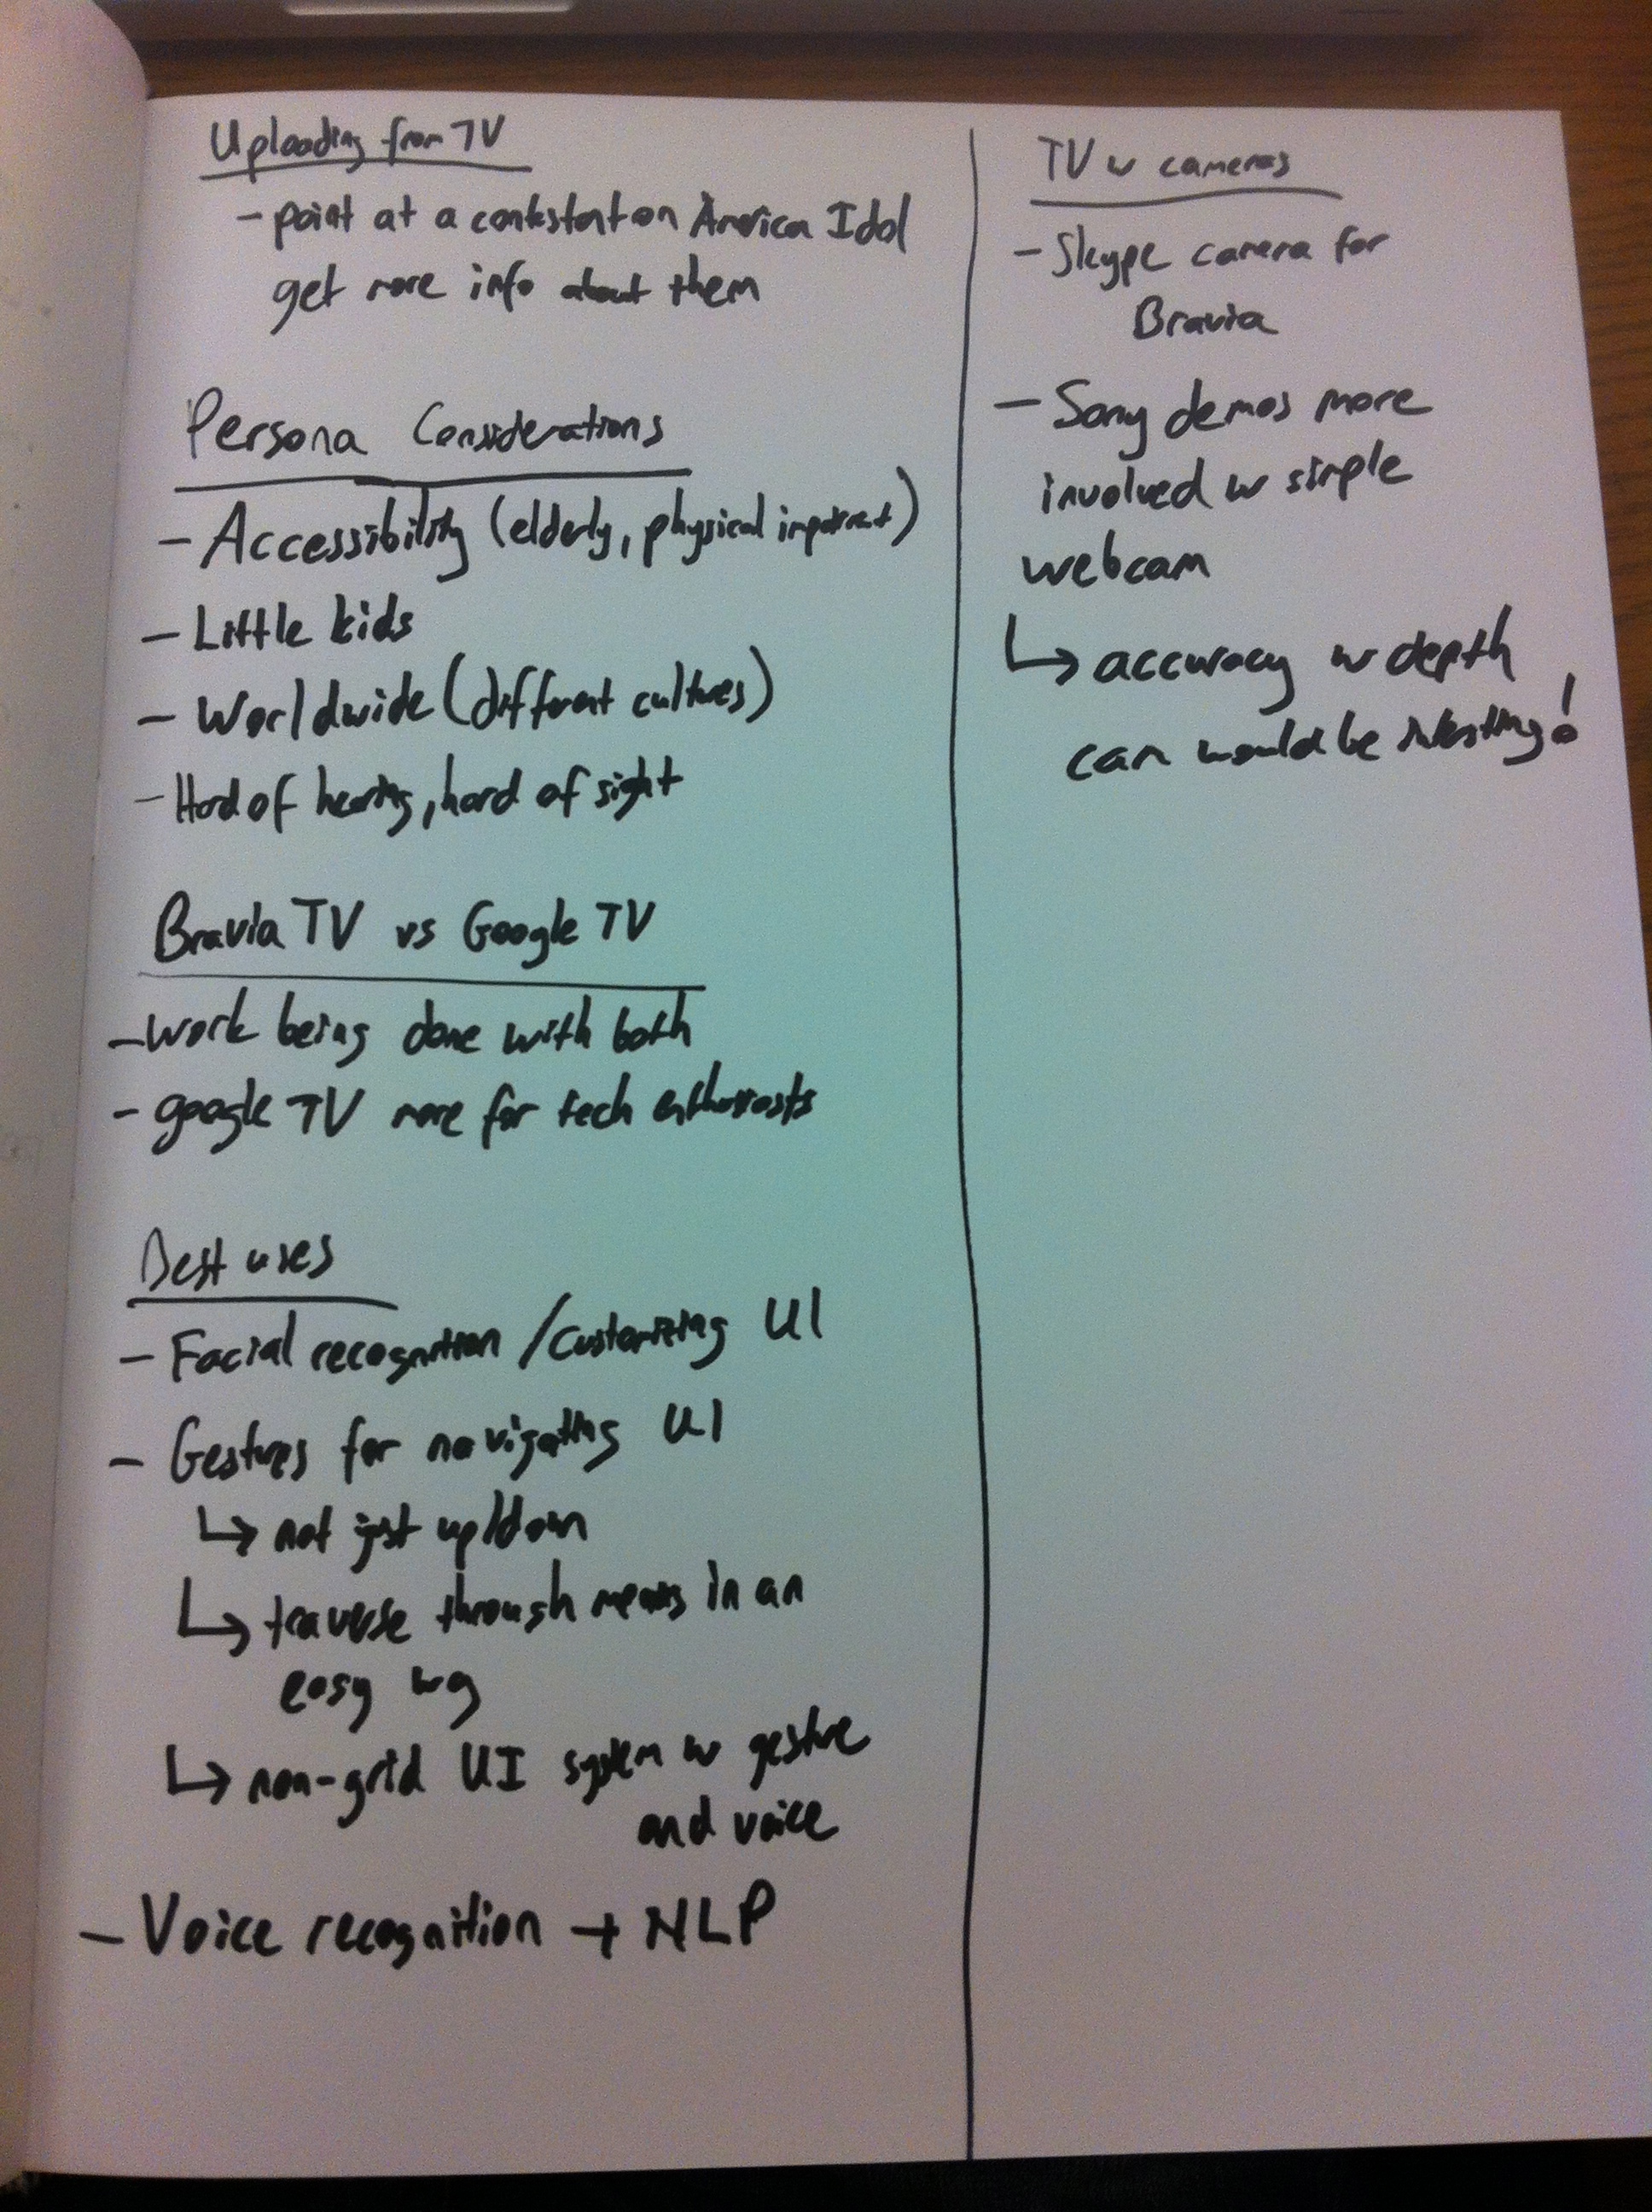 Uploading from TV
- point at a contestant on America Idol
get more info about them
Persona Considerations
- Accessibility (elderly, physical impairment)
- Little kids
- Worldwide (different cultures)
- Hard of hearing, hard of sight
Bravia TV vs Google TV
- work being done with both
- google TV more for tech enthusiasts
Best uses
- Facial recognition / Customizing UI
- Gestures for navigating UI
↳ not just up/down
↳ traverse through menus in an
easy way
↳ non-grid UI system w gesture
and voice
- Voice recognition + NLP
TV w cameras
- Skype camera for
Bravia
- Sony demos more
involved w simple
webcam
↳ accuracy w depth
cam would be interesting!